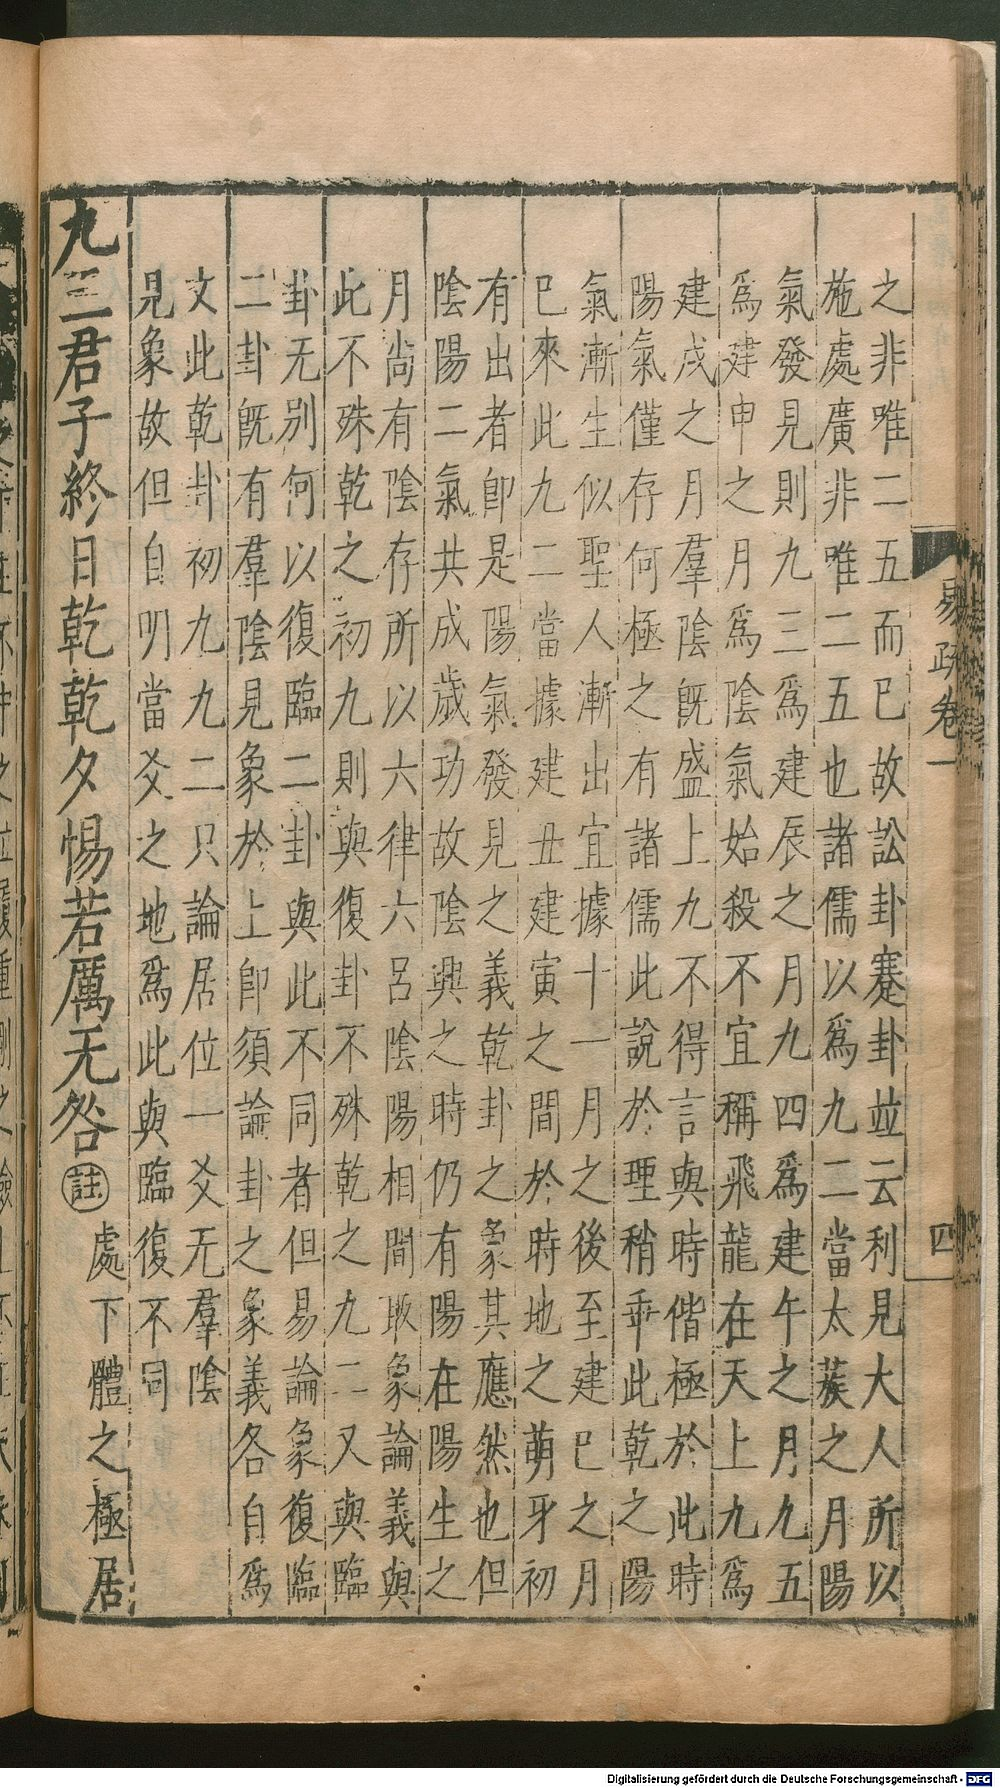 之非唯二五而已故訟卦蹇卦竝云利見大人所以
施處廣非唯二五也諸儒以爲九二當太蔟之月陽
氣發見則九三爲建辰之月九四爲建午之月九五
爲建申之月爲陰氣始殺不宜稱飛龍在天上九爲
建戌之月羣陰旣盛上九不得言與時偕極於此時
陽氣僅存何極之有諸儒此說於理稍乖此乾之陽
氣漸生似聖人漸出宜據十一月之後至建巳之月
已來此九二當據建丑建寅之間於時地之萌牙初
有出者卽是陽氣發見之義乾卦之象其應然也但
陰陽二氣共成歲功故陰興之時仍有陽在陽生之
月尚有陰存所以六律六呂陰陽相間取象論義與
此不殊乾之初九則與復卦不殊乾之九二又與臨
卦无別何以復臨二卦與此不同者但易論象復臨
二卦旣有羣陰見象於上卽須論卦之象義各自爲
文此乾卦初九九二只論居位一爻无羣陰
見象故但自明當爻之地爲此與臨復不同
九三君子終日乾乾夕惕若厲无咎註處下體之極居
易疏卷一
四
Digitalisierung gefördert durch die Deutsche Forschungsgemeinschaft - DFG